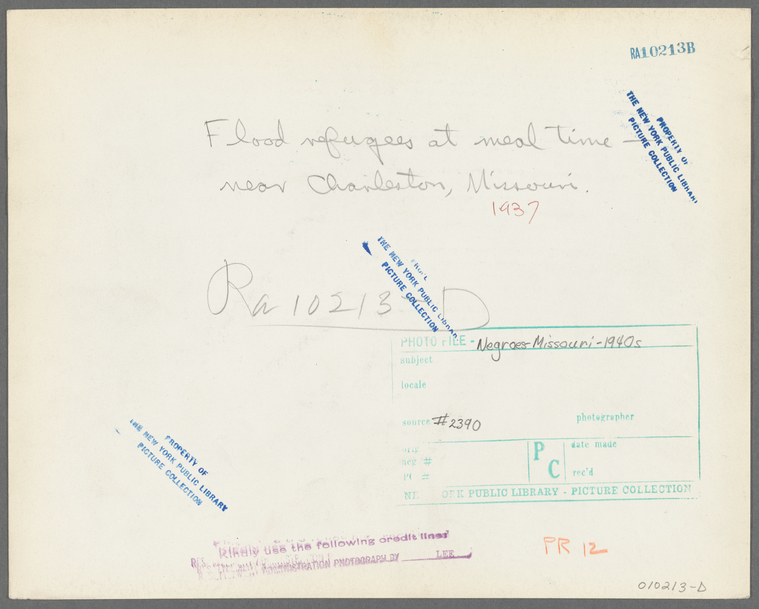 RA10213B
PROPERTY OF
THE NEW YORK PUBLIC LIBRARY
PICTURE COLLECTION
Flood refugees at meal time -
near Charleston, Missouri.
1937
THE NEW YORK PUBLIC LIBRARY
PICTURE COLLECTION
Ra 10213-D
PHOTO FILE - Negroes-Missouri-1940s
subject
locale
source #2390
photographer
date made
PC
rec'd
PUBLIC LIBRARY - PICTURE COLLECTION
PROPERTY OF
THE NEW YORK PUBLIC LIBRARY
PICTURE COLLECTION
Kindly use the following credit line:
ADMINISTRATION PHOTOGRAPH BY LEE
PR 12
010213-D